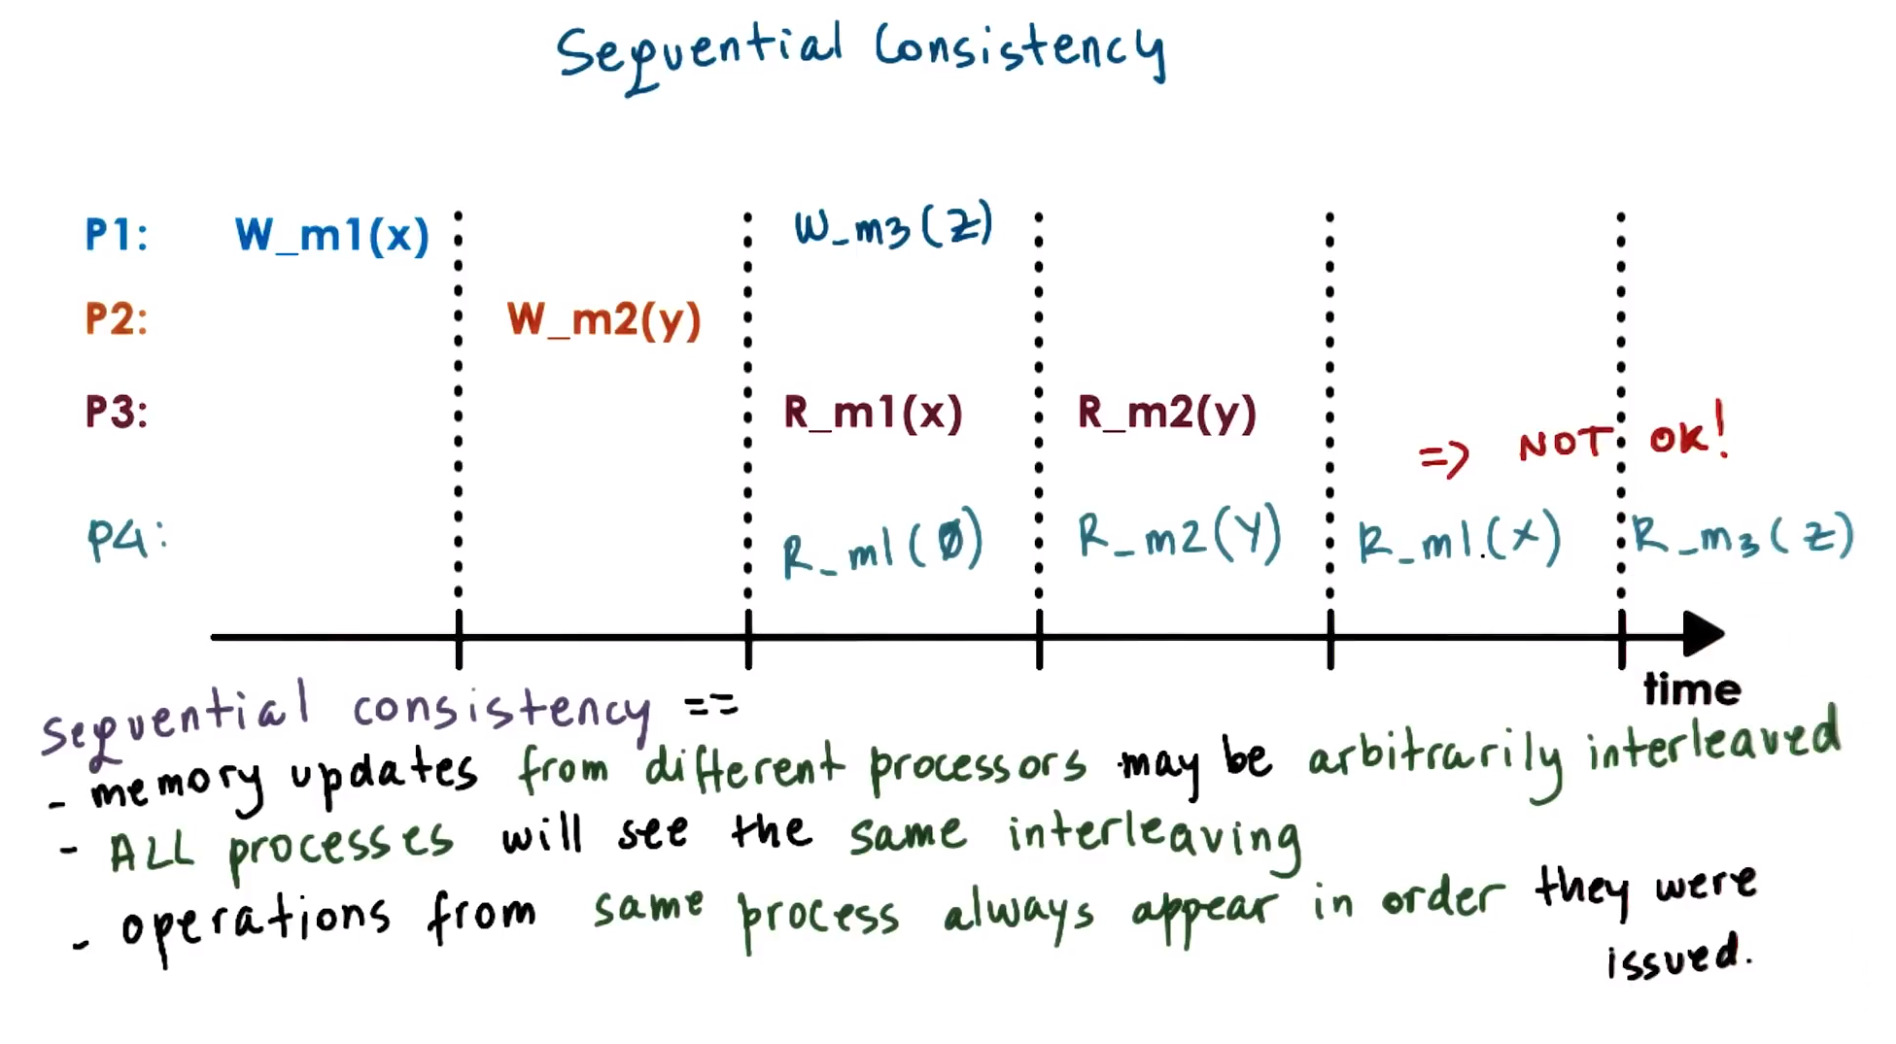 Sequential Consistency
P1: W_m1(x) W_m3(z)
P2: W_m2(y)
P3: R_m1(x) R_m2(y)
=> NOT OK!
P4: R_m1(0) R_m2(Y) R_m1.(x) R_m3(z)
time
sequential consistency ==
- memory updates from different processors may be arbitrarily interleaved
- ALL processes will see the same interleaving
- operations from same process always appear in order they were
issued.